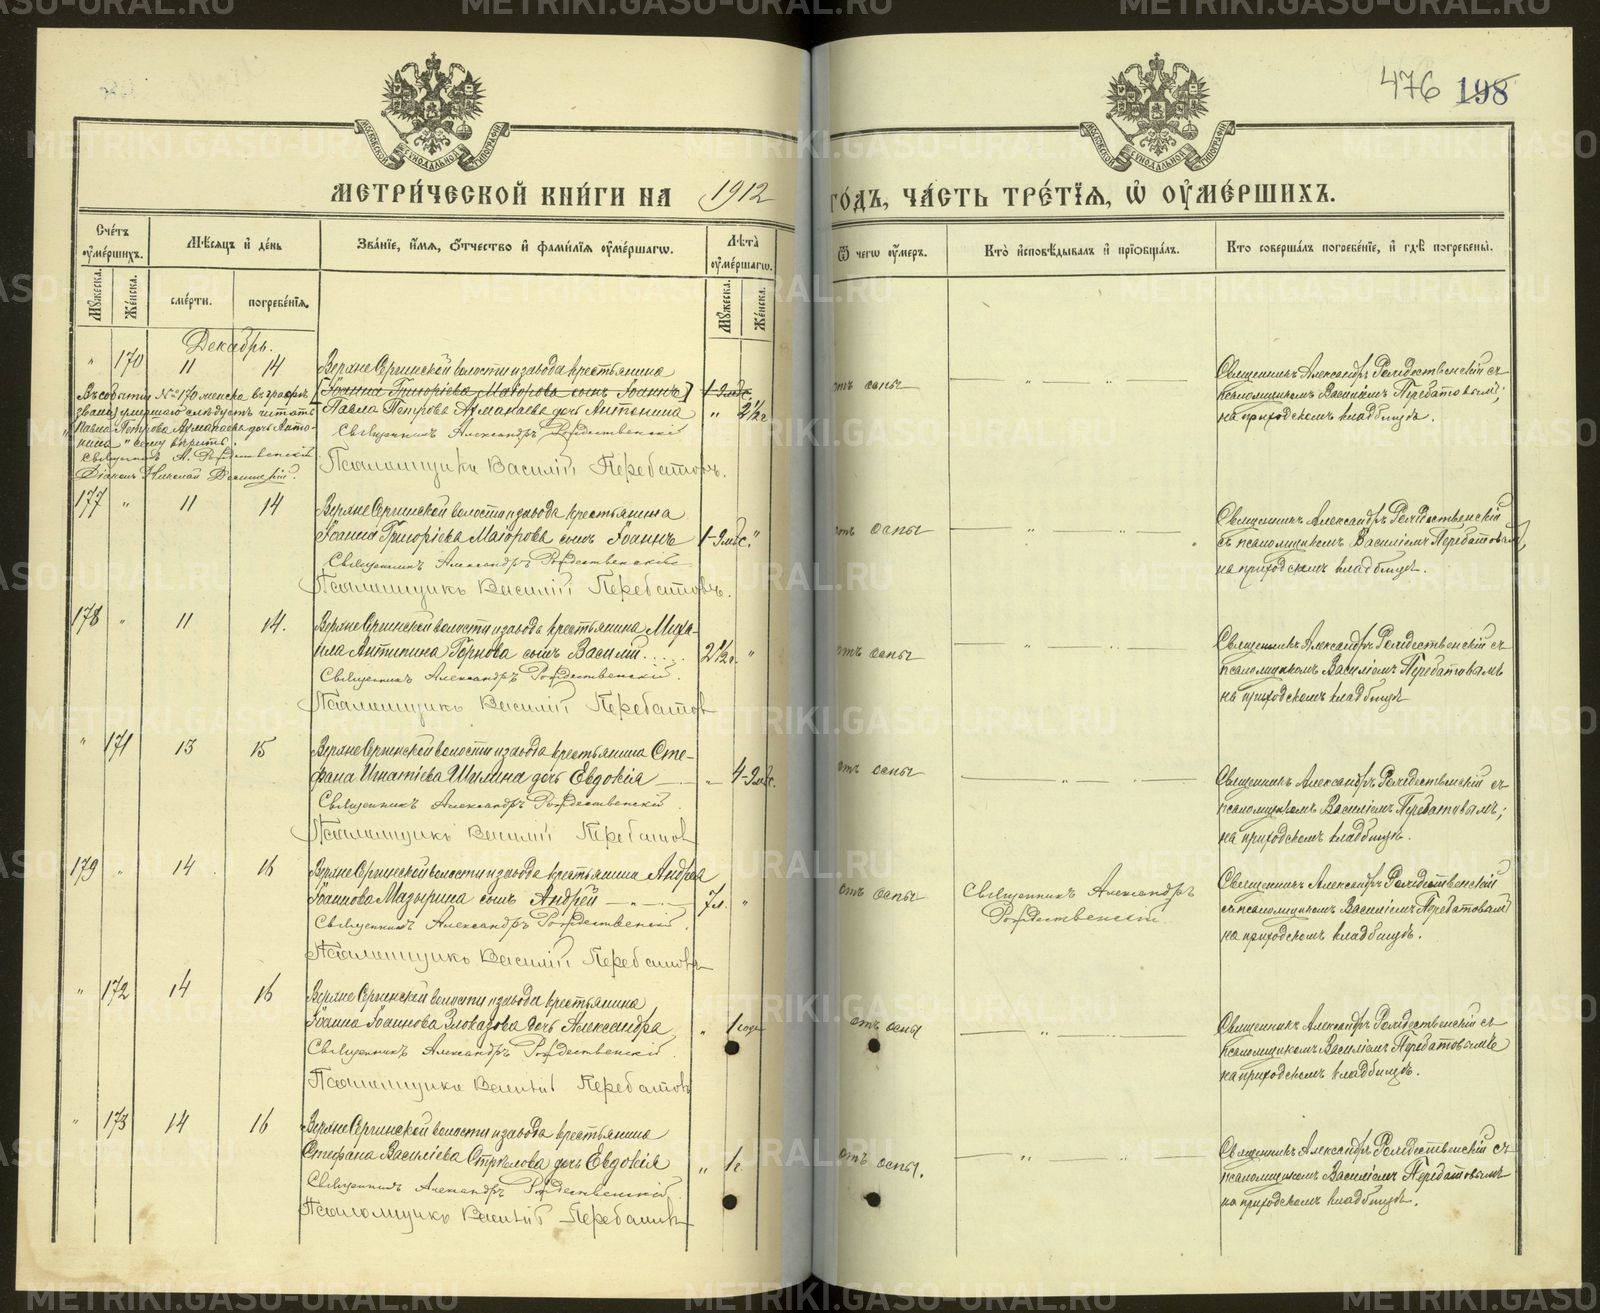 476 198
МОСКОВСКОЙ СѴНОДАЛЬНОЙ ТИПОГРАФІИ
МОСКОВСКОЙ СѴНОДАЛЬНОЙ ТИПОГРАФІИ
МЕТРИ́ЧЕСКОЙ КНИ́ГИ НА 1912 ГО́ДЪ, ЧА́СТЬ ТРЕ́ТІЯ, Ѡ ОУМЕ́РШИХЪ.
Сче́тъ оуме́ршихъ.
Мѣ́сяцъ и де́нь
Зва́ніе, и́мя, о́тчество и фами́лія оуме́ршагѡ.
Лѣ́та оуме́ршагѡ.
Ѿ чегѡ̀ оу́меръ.
Кто̀ исповѣ́дывалъ и пріѡбща́лъ.
Кто соверша́лъ погребе́ніе, и гдѣ̀ погребены̀.
Мꙋ́жеска.
Же́нска.
сме́рти.
погребе́нія.
Мꙋ́жеска.
Же́нска.
Декабрь.
" 170 11 14
Верхне Сергинской волости и завода крестьянина
[Іоанна Григорьева Маіорова сынъ Іоаннъ] 1-9 мѣс.
Павла Петрова Армапаева дочь Антонина " 2½ г
Священникъ Александръ Рождественскій
Псаломщикъ Василій Перебатовъ.
Въ событіи № 170 женска въ графѣ
званіе умершаго слѣдуетъ читать
"Павла Петрова Армапаева дочь Анто-
нина" чему вѣрить.
Священникъ А. Рождественскій
Діаконъ Николай
отъ оспы
Священникъ Александръ Рождественскій съ
псаломщикомъ Василіемъ Перебатовымъ;
на приходскомъ кладбищѣ.
177 " 11 14
Верхне Сергинской волости и завода крестьянина
Іоанна Григорьева Маіорова сынъ Іоаннъ 1-9 мѣс. "
Священникъ Александръ Рождественскій
Псаломщикъ Василій Перебатовъ.
отъ оспы
Священникъ Александръ Рождественскій
съ псаломщикомъ Василіемъ Перебатовым,
на приходскомъ кладбищѣ.
178 " 11 14.
Верхне Сергинской волости и завода крестьянина Миха-
ила Антипина Горнова сынъ Василій 2½ г. "
Священникъ Александръ Рождественскій.
Псаломщикъ Василій Перебатов
отъ оспы
Священникъ Александръ Рождественскій съ
псаломщикомъ Василіемъ Перебатовымъ
на приходскомъ кладбищѣ
" 171 13 15
Верхне Сергинской волости и завода крестьянина Сте-
фана Игнатіева Шилина дочь Евдокія " 4-9 мѣс.
Священникъ Александръ Рождественскій.
Псаломщикъ Василій Перебатов
отъ оспы
Священникъ Александръ Рождественскій съ
псаломщикомъ Василіемъ Перебатовымъ;
на приходскомъ кладбищѣ.
179 " 14 16
Верхне Сергинской волости и завода крестьянина Андрея
Іоаннова Мазырина сынъ Андрей 7 л. "
Священникъ Александръ Рождественскій.
Псаломщикъ Василій Перебатовъ
отъ оспы
Священникъ Александръ
Рождественскій.
Священникъ Александръ Рождественскій
съ псаломщикомъ Василіемъ Перебатовымъ
на приходскомъ кладбищѣ.
" 172 14 16
Верхне Сергинской волости и завода крестьянина
Іоанна Іоаннова Злоказова дочь Александра " 1 года
Священникъ Александръ Рождественскій.
Псаломщикъ Василій Перебатовъ
отъ оспы
Священникъ Александръ Рождественскій съ
псаломщикомъ Василіемъ Перебатовымъ
на приходскомъ кладбищѣ.
" 173 14 16
Верхне Сергинской волости и завода крестьянина
Стефана Василіева Стрѣлова дочь Евдокія " 1 г.
Священникъ Александръ Рождественскій.
Псаломщикъ Василій Перебатовъ
отъ оспы.
Священникъ Александръ Рождественскій съ
псаломщикомъ Василіемъ Перебатовымъ
на приходскомъ кладбищѣ.
METRIKI.GASO-URAL.RU